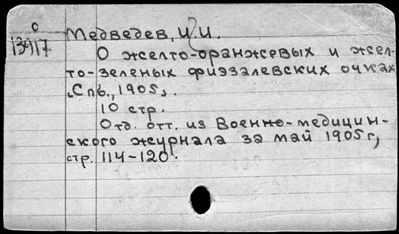 0
13917
Медведев, И.И.
О желто-оранжевых и жел-
то-зеленых физзалевских очках
Спб., 1905.
10 стр.
Отд. отт. из Военно-медицин-
ского журнала за май 1905 г.,
стр. 114-120.